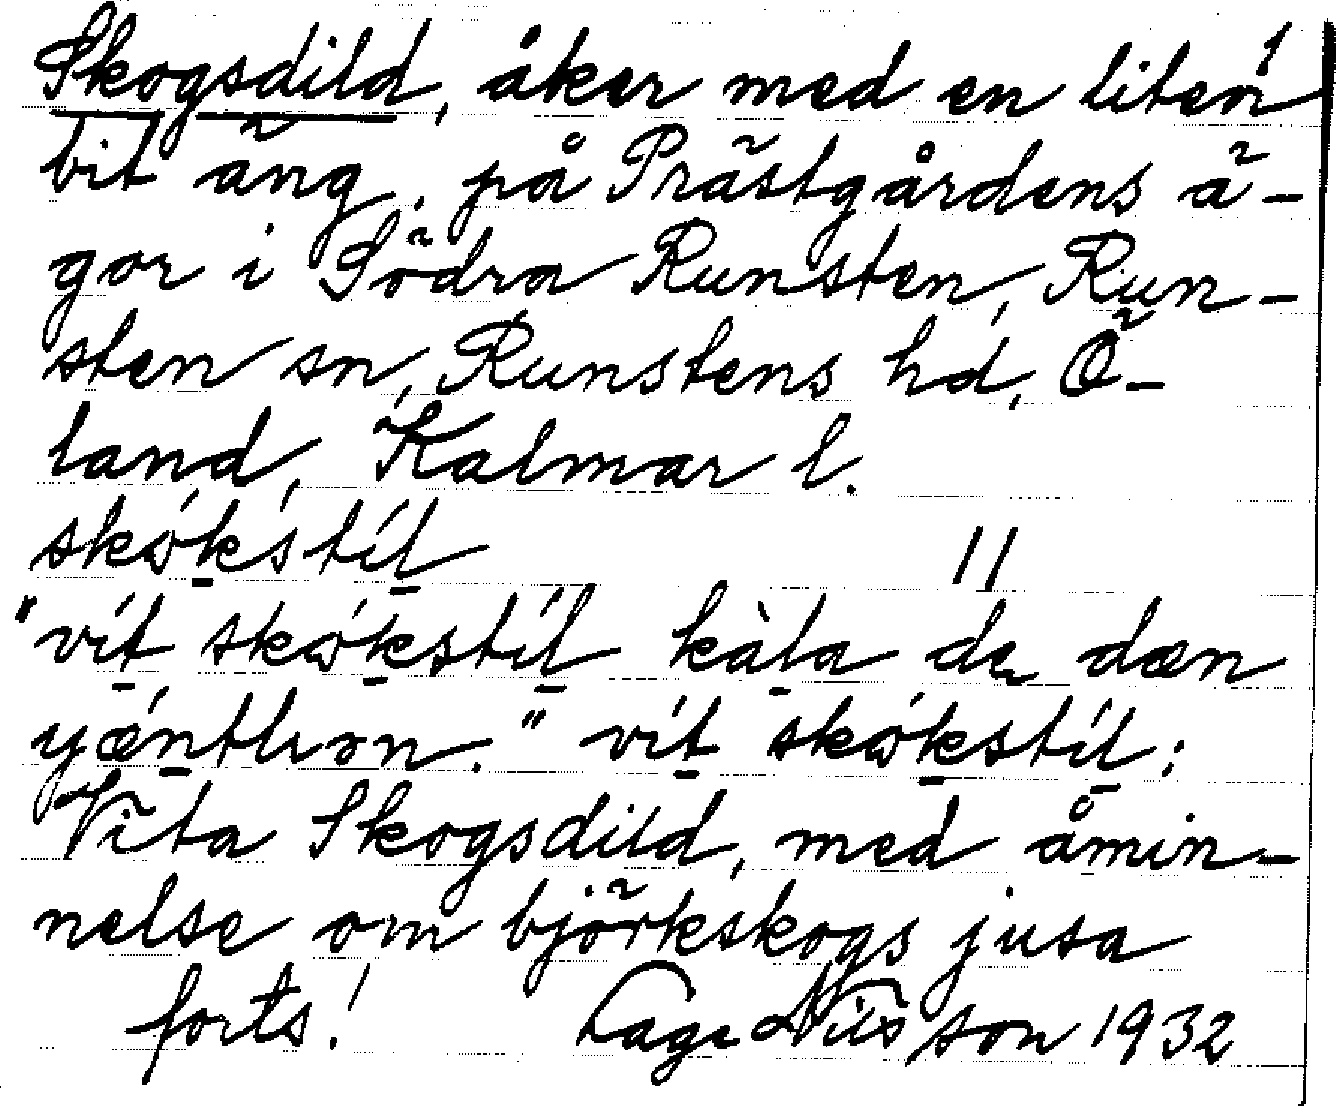 Skogsdild, åker med en liten 1
bit äng, på Prästgårdens ä-
gor i Södra Runsten, Run-
sten sn, Runstens hd, Ö-
land, Kalmar l.
skókstíl 11
"vít skókstíl kàla de dæn
yǽntlıɜn." vít skókstíl:
Vita Skogsdild, med åmin-
nelse om björkskogs jusa
forts! Lage Nilsson 1932